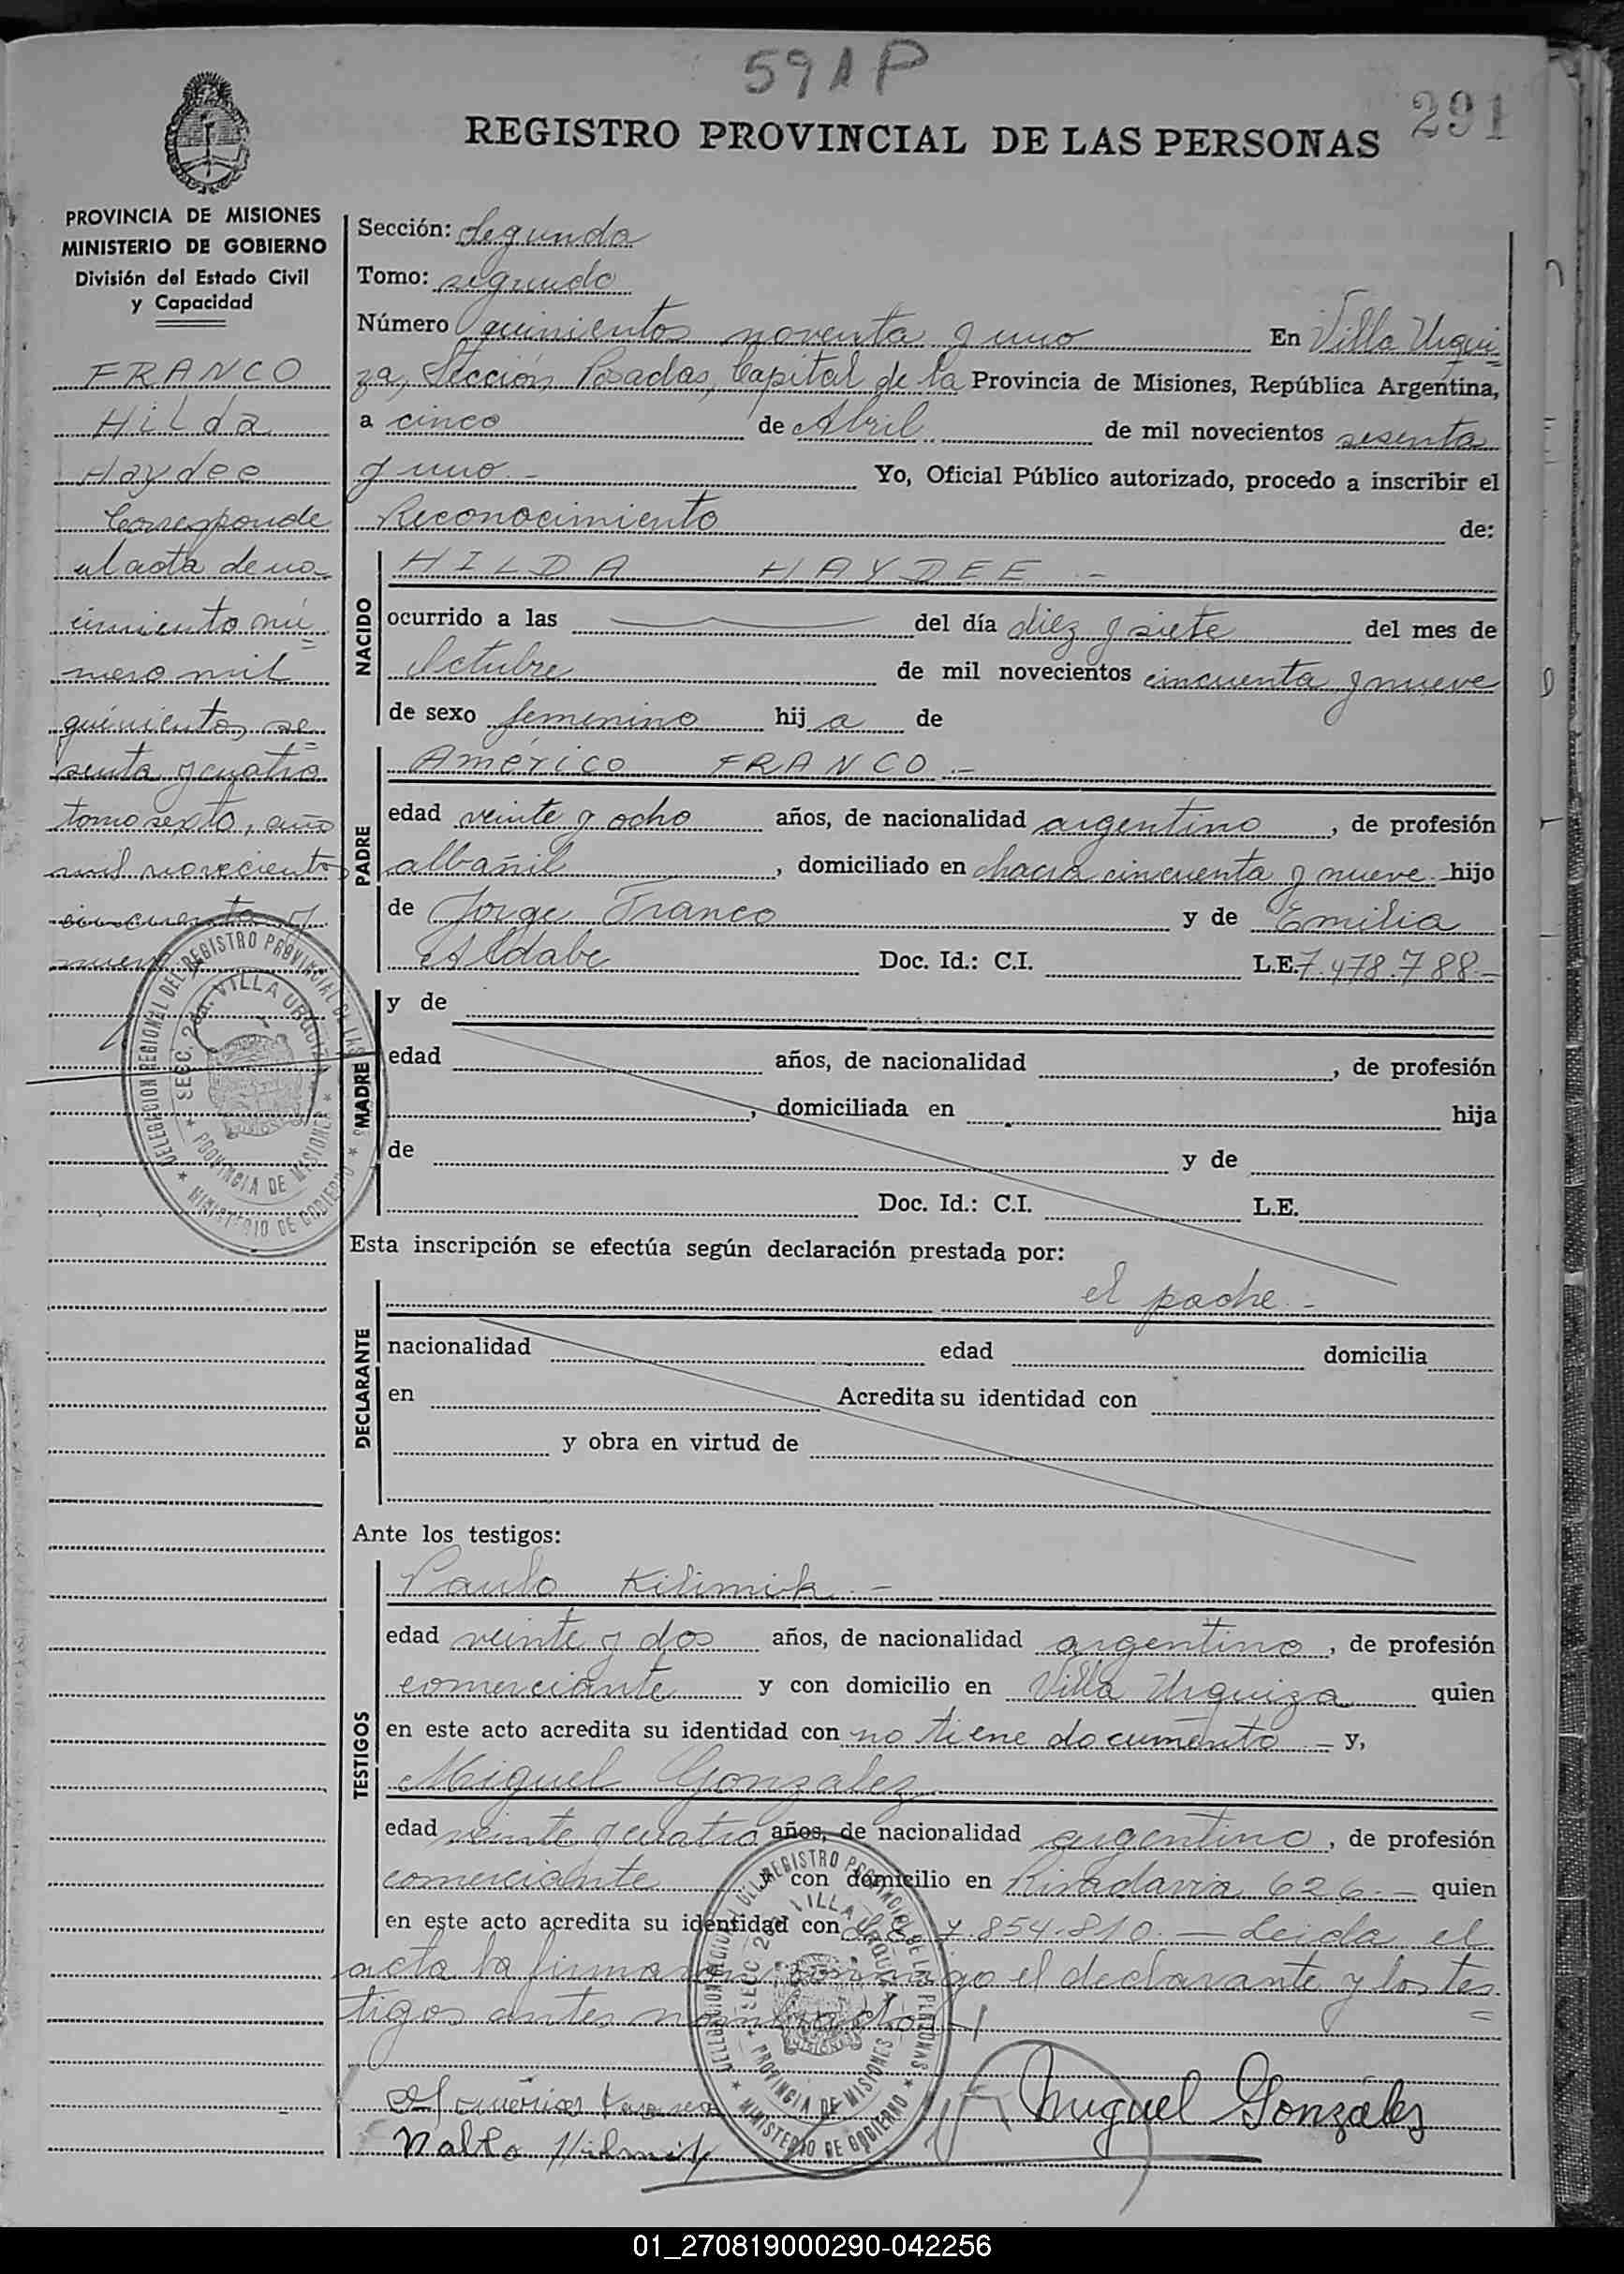 591 P
291
REGISTRO PROVINCIAL DE LAS PERSONAS
PROVINCIA DE MISIONES
MINISTERIO DE GOBIERNO
División del Estado Civil
y Capacidad
FRANCO
Hilda
Haydee
Corresponde
al acta de na-
cimiento nú=
mero mil
quinientos se=
senta y cuatro
tomo sexto, año
mil novecientos
cincuenta y
nueve
Sección: Segunda
Tomo: segundo
Número quinientos noventa y uno En Villa Urqui=
za, Sección Posadas, Capital de la Provincia de Misiones, República Argentina,
a cinco de Abril de mil novecientos sesenta
y uno.- Yo, Oficial Público autorizado, procedo a inscribir el
Reconocimiento de:
NACIDO
HILDA HAYDEE.-
ocurrido a las del día diez y siete del mes de
Octubre de mil novecientos cincuenta y nueve
de sexo femenino hija de
PADRE
Américo FRANCO.-
edad veinte y ocho años, de nacionalidad argentino, de profesión
albañil, domiciliado en chacra cincuenta y nueve hijo
de Jorge Franco y de Emilia
Aldabe Doc. Id.: C.I. L.E. 7.478.788.-
MADRE
y de
edad años, de nacionalidad , de profesión
, domiciliada en hija
de y de
Doc. Id.: C.I. L.E.
Esta inscripción se efectúa según declaración prestada por:
DECLARANTE
el padre.-
nacionalidad edad domicilia
en Acredita su identidad con
y obra en virtud de
Ante los testigos:
TESTIGOS
Paulo Kilimik.-
edad veinte y dos años, de nacionalidad argentino, de profesión
comerciante y con domicilio en Villa Urquiza quien
en este acto acredita su identidad con no tiene documento.- y,
Miguel Gonzalez
edad veinte y cuatro años, de nacionalidad argentino, de profesión
comerciante y con domicilio en Rivadavia 626.- quien
en este acto acredita su identidad con L.E. 7.854.810.- Leida el
acta la firman conmigo el declarante y los tes=
tigos antes nombrados.-
Miguel González
DELEGACION REGIONAL DEL REGISTRO PROVINCIAL DE LAS PERSONAS
SECC. 2da. VILLA URQUIZA
PROVINCIA DE MISIONES
MINISTERIO DE GOBIERNO
01_270819000290-042256